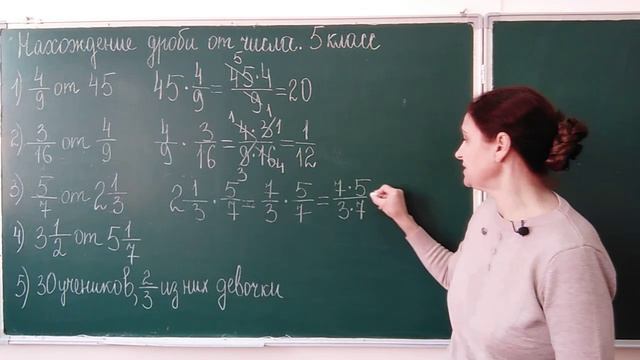 Нахождение дроби от числа. 5 класс
1) 4/9 от 45 45 · 4/9 = 45·4/9 = 20
2) 3/16 от 4/9 4/9 · 3/16 = 4·3/9·16 = 1/12
3) 5/7 от 2 1/3 2 1/3 · 5/7 = 7/3 · 5/7 = 7·5/3·7
4) 3 1/2 от 5 1/7
5) 30 учеников, 2/3 из них девочки